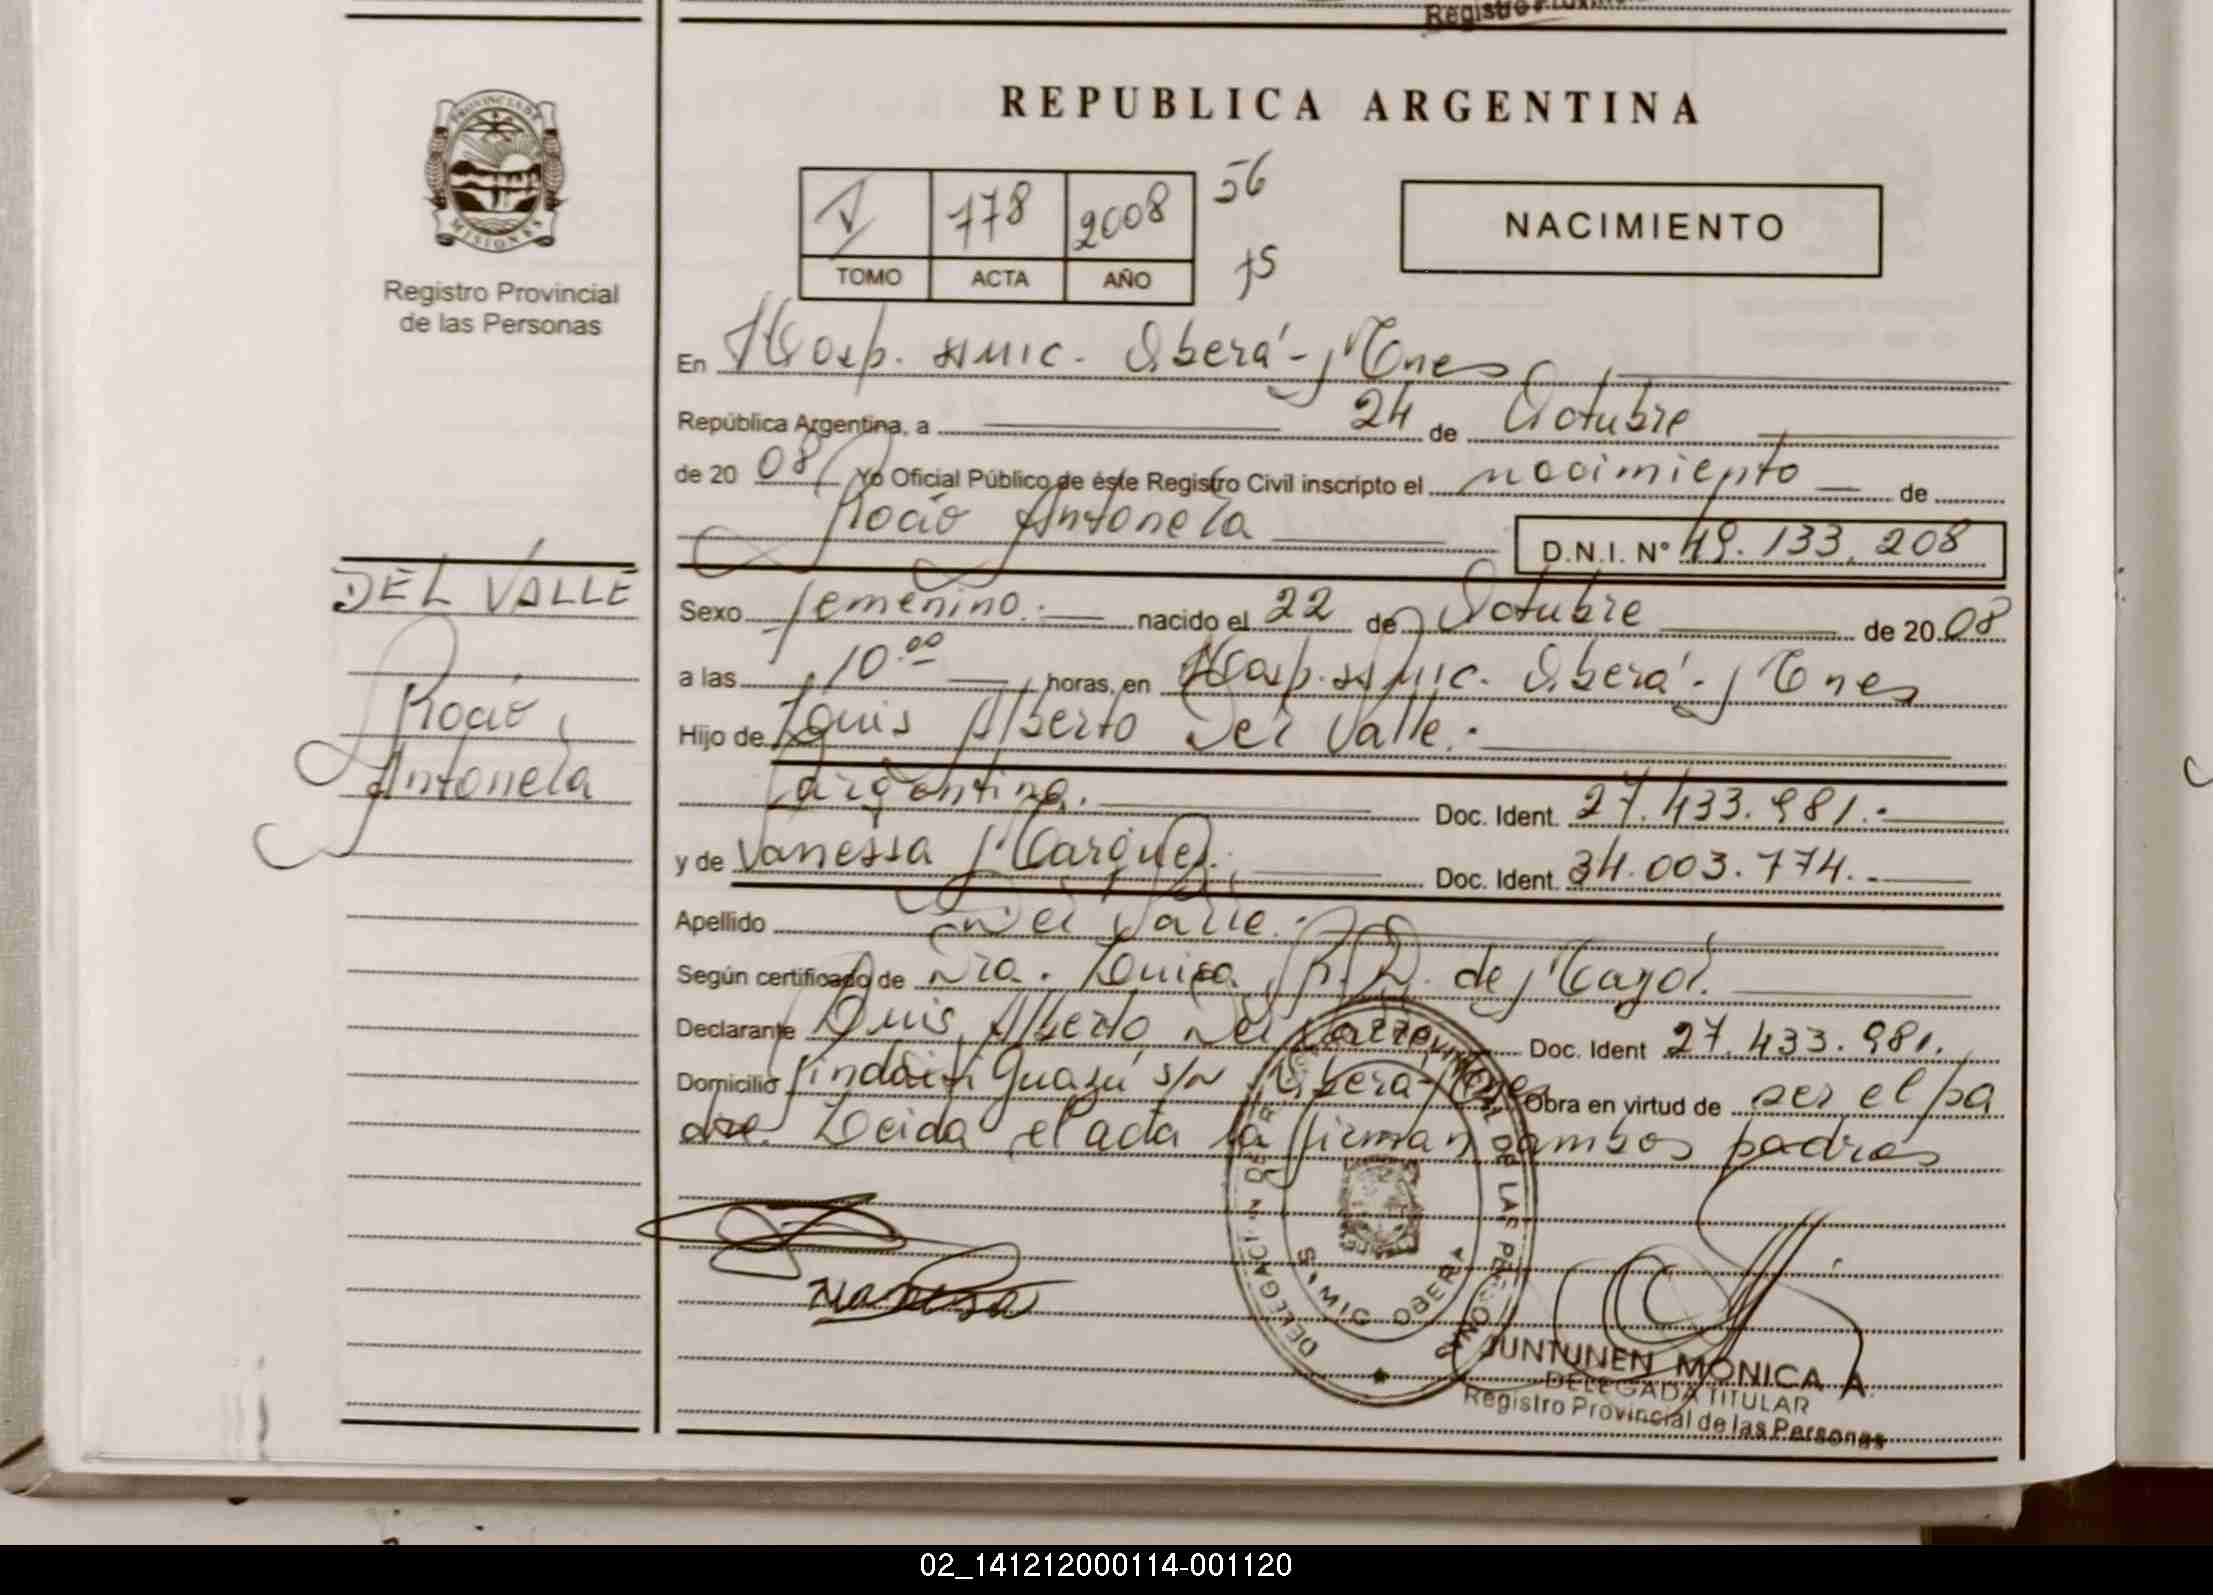 PROVINCIA DE
MISIONES
Registro Provincial
de las Personas
REPUBLICA ARGENTINA
778 2008 56
TOMO ACTA AÑO 75
NACIMIENTO
En Hosp. SAMIC. Oberá - Mnes
República Argentina, a 24 de Octubre
de 20 08 Yo Oficial Público de éste Registro Civil inscripto el nacimiento de
Rocío Antonela D.N.I. N° 49.133.208
DEL VALLE
Rocío
Antonela
Sexo femenino. nacido el 22 de Octubre de 20 08
a las 10.00 horas, en Hosp. SAMIC. Oberá - Mnes
Hijo de Luis Alberto Del Valle.
argentina. Doc. Ident. 27.433.981.
y de Vanessa Marquez. Doc. Ident. 34.003.774.
Apellido Del Valle.
Según certificado de Dra. Luisa R. D. de Mayol.
Declarante Luis Alberto Del Valle Doc. Ident 27.433.981.
Domicilio Pindaití Guazú s/n Oberá - Mnes Obra en virtud de ser el pa
dre. Leida el acta la firman ambos padres
Vanessa
S.A.MIC OBERA
JUNTUNEN MONICA A.
DELEGADA TITULAR
Registro Provincial de las Personas
02_141212000114-001120